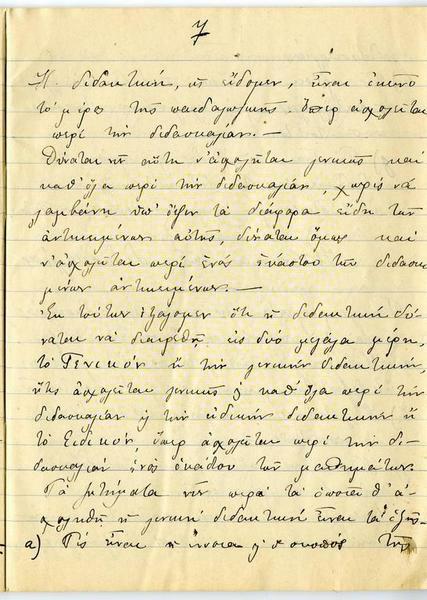 7
Ἡ διδακτική, ὡς εἴδομεν, εἶναι ἐκεῖνο
τὸ μέρος τῆς παιδαγωγικῆς, ὅπερ ἀσχολεῖται
περὶ τὴν διδασκαλίαν. —
Δύναται νῦν αὕτη ν' ἀσχολῆται γενικῶς καὶ
καθ' ὅλα περὶ τὴν διδασκαλίαν, χωρὶς νὰ
λαμβάνῃ ὑπ' ὄψιν τὰ διάφορα εἴδη τῶν
ἀντικειμένων αὐτῆς, δύναται ὅμως καὶ
ν' ἀσχολῆται περὶ ἑνὸς ἑκάστου τῶν διδασκο-
μένων ἀντικειμένων. —
Ἐκ τούτων ἐξάγομεν ὅτι ἡ διδακτικὴ δύ-
ναται νὰ διαιρεθῇ εἰς δύο μεγάλα μέρη,
τὸ Γενικὸν ἢ τὴν γενικὴν διδακτικήν,
ἥτις ἀσχολεῖται γενικῶς καθ' ὅλα περὶ τὴν
διδασκαλίαν τὴν εἰδικὴν διδακτικὴν ἢ
τὸ Εἰδικόν, ὅπερ ἀσχολεῖται περὶ τὴν δι-
δασκαλίαν ἑνὸς ἑκάστου τῶν μαθημάτων.
Τὰ ζητήματα νῦν περὶ τὰ ὁποῖα θ' ἀ-
σχοληθῇ ἡ γενικὴ διδακτικὴ εἶναι τὰ ἑξῆς·
α) Τίς εἶναι ἡ ἔννοια ὁ σκοπὸς τῆς